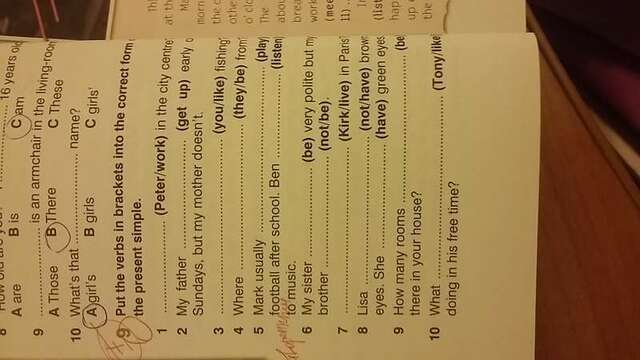 16 years old
A are B is C am
9 ........ is an armchair in the living-room
A Those B There C These
10 What's that ........ name?
A girl's B girls C girls'
9 Put the verbs in brackets into the correct form
the present simple.
1 ........ (Peter/work) in the city centre
2 My father ........ (get up) early
Sundays, but my mother doesn't.
3 ........ (you/like) fishing
4 Where ........ (they/be) from
5 Mark usually ........ (play
football after school. Ben ........ (listen
to music.
6 My sister ........ (be) very polite but my
brother ........ (not/be).
7 ........ (Kirk/live) in Paris
8 Lisa ........ (not/have) brown
eyes. She ........ (have) green eyes
9 How many rooms ........ (be
there in your house?
10 What ........ (Tony/like
doing in his free time?